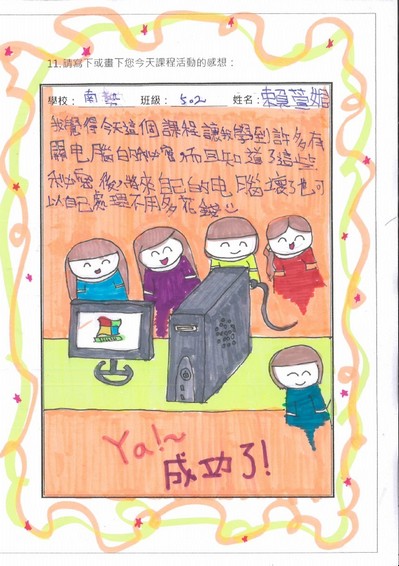 11.請寫下或畫下您今天課程活動的感想：
學校：南勢 班級：502 姓名：賴萱
我覺得今天這個課程讓我學到許多有
關电腦的秘密,而且知道了這些
秘密後,將來自己的电腦壞了也可
以自己處理不用多花錢
Ya!~
成功了!